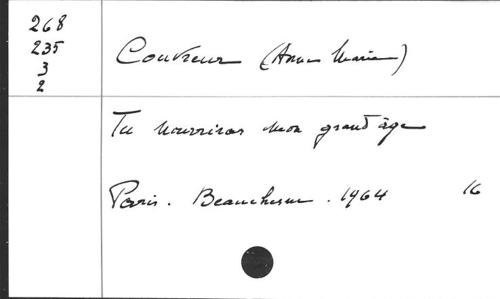 268
235
3
2
Couvreur (Anne Marie)
Tu nourriras mon grand âge
Paris. Beauchesne. 1964 16